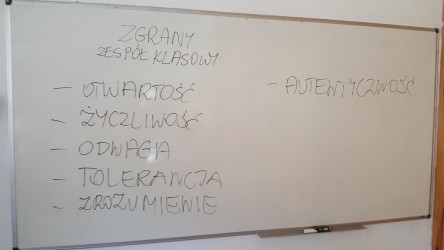 ZGRANY
ZESPÓŁ KLASOWY
- OTWARTOŚĆ
- ŻYCZLIWOŚĆ
- ODWAGA
- TOLERANCJA
- ZROZUMIENIE
- AUTENTYCZNOŚĆ